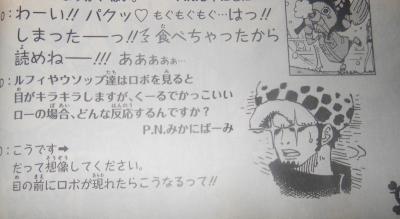 O：わーい!! パクッ♡ もぐもぐもぐ…はっ!!
しまったーっ!!そ食べちゃったから
読めねーっ!!! あああぁぁ…
O：ルフィやウソップ達はロボを見ると
目がキラキラしますが、くーるでかっこいい
ローの場合、どんな反応するんですか？
P.N.みかにばーみ
O：こうです➡
だって想像してください。
目の前にロボが現れたらこうなるって!!